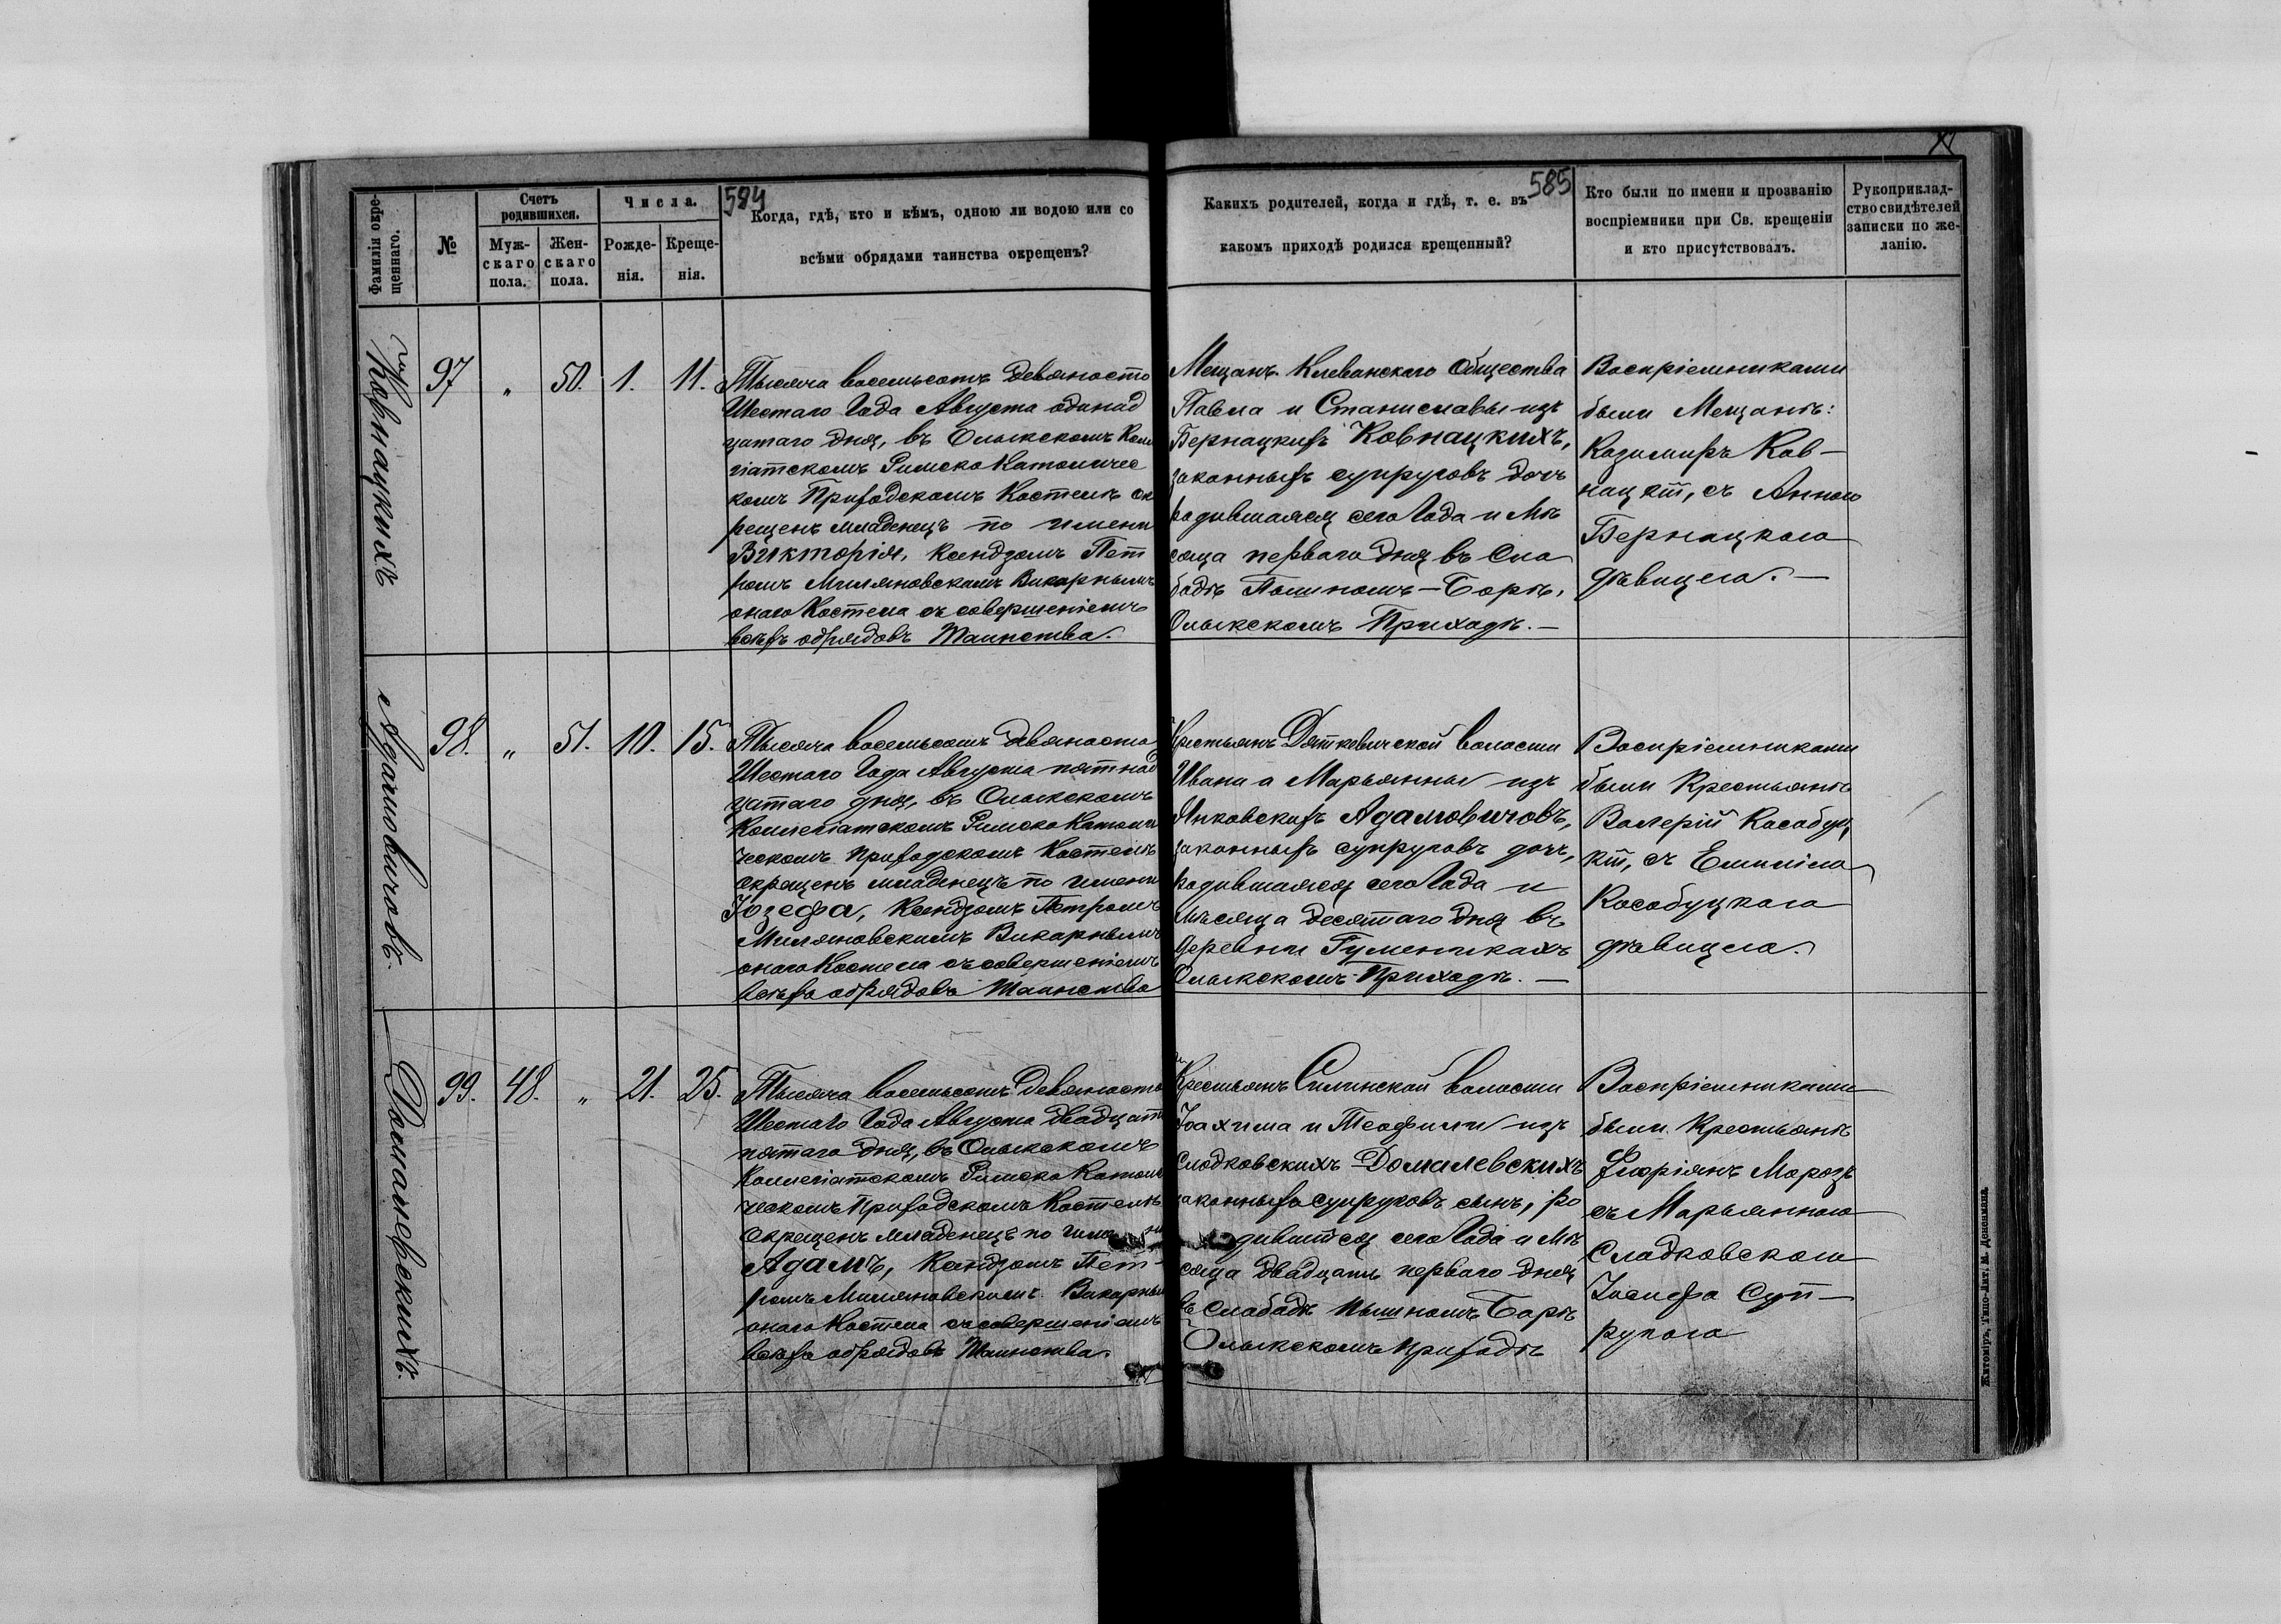 584
585
Фамилія окре-
щеннаго.
№
Счетъ
родившихся.
Муж-
скаго
пола.
Жен-
скаго
пола.
Числа.
Рожде-
нія.
Креще-
нія.
Когда, гдѣ, кто и кѣмъ, одною ли водою или со
всѣми обрядами таинства окрещенъ?
Какихъ родителей, когда и гдѣ, т. е. въ
какомъ приходѣ родился крещенный?
Кто были по имени и прозванію
воспріемники при Св. крещеніи
и кто присутствовалъ.
Рукоприклад-
ство свидѣтелей
записки по же-
ланію.
Ковнацкихъ
97
„
50.
1.
11.
Тысяча восемьсотъ девяносто
Шестаго Года Августа одинад
цатаго дня, въ Олыкскомъ Кол
гіатскомъ Римско Католичес
комъ Приходскомъ Костелѣ ок
рещенъ младенецъ по имени
Викторія, Ксендзомъ Пет
ромъ Миляновскимъ Викарнымъ
онаго Костела съ совершеніемъ
всѣхъ обрядовъ Таинства.
Мещанъ Клеванскаго Общества
Павла и Станиславы изъ
Бернацкихъ Ковнацкихъ,
законныхъ супруговъ дочь
родившаяся сего Года и Мѣ
сяца перваго дня въ Сло
бодѣ Пышномъ-Борѣ,
Олыкскомъ Приходѣ. —
Воспріемниками
были Мещанѣ:
Казимиръ Ков-
нацкій, съ Анною
Бернацкою
дѣвицею. —
Адамовичовъ.
98.
„
51.
10.
15.
Тысяча восемьсотъ девяносто
Шестаго Года Августа пятнад
цатаго дня, въ Олыкскомъ
Коллегіатскомъ Римско Католи
ческомъ Приходскомъ Костелѣ
окрещенъ младенецъ по имени
Юзефа, Ксендзомъ Петромъ
Миляновскимъ Викарнымъ
онаго Костела съ совершеніемъ
всѣхъ обрядовъ Таинства
Крестьянъ Дятковичской волости
Ивана и Марьянны изъ
Янковскихъ Адамовичовъ,
законныхъ супруговъ дочь,
родившаяся сего Года и
Мѣсяца десятаго дня въ
Деревни Гуменикахъ
Олыкскомъ Приходѣ. —
Воспріемниками
были Крестьянѣ
Валерій Кособуц
кій, съ Емиліею
Кособуцкою
дѣвицею.
Домалевскихъ.
99.
48.
„
21.
25.
Тысяча восемьсотъ девяносто
Шестаго Года Августа двадцать
пятаго дня, въ Олыкскомъ
Коллегіатскомъ Римско Католи
ческомъ Приходскомъ Костелѣ
окрещенъ младенецъ по имени
Адамъ, Ксендзомъ Пет-
ромъ Миляновскимъ Викарным
онаго Костела съ совершеніемъ
всѣхъ обрядовъ Таинства.
Крестьянъ Силинской волости
Іоахима и Теофили изъ
Слодковскихъ Домалевскихъ
законныхъ супруговъ сынъ, ро
дившійся сего Года и Мѣ
сяца двадцать перваго дня
въ Слободѣ Пышномъ Борѣ
Олыкскомъ Приходѣ
Воспріемниками
были Крестьянѣ
Флоріянъ Морозъ
съ Марьянною
Сладковскою
Іосифа Суп-
ругою
Житоміръ, Типо-Лит. М. Дененмана